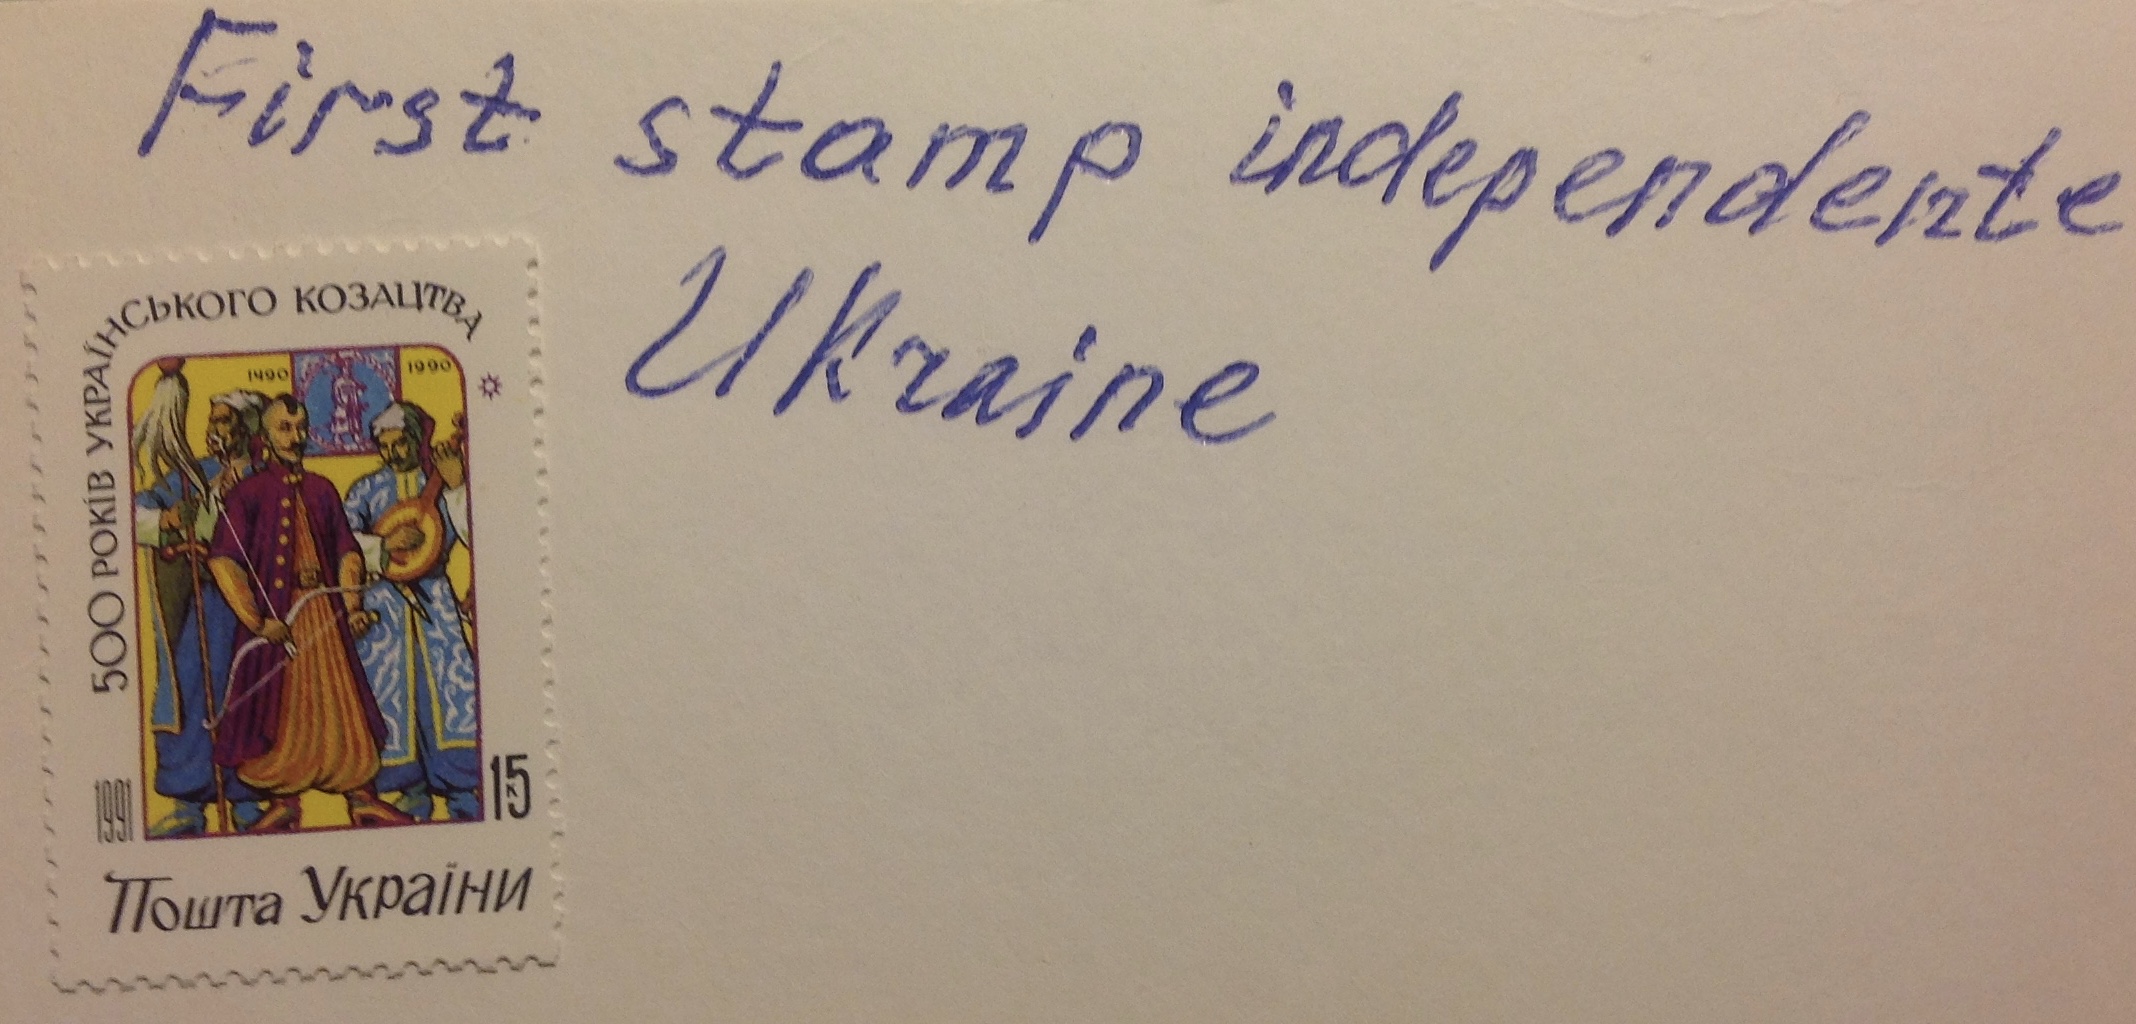 First stamp independente
Ukraine
500 РОКІВ УКРАЇНСЬКОГО КОЗАЦТВА
1490
1990
1991
15 к
Пошта України